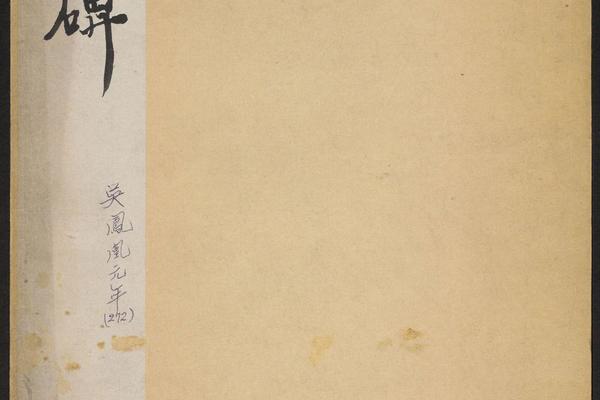 碑
吳鳳凰元年
(272)